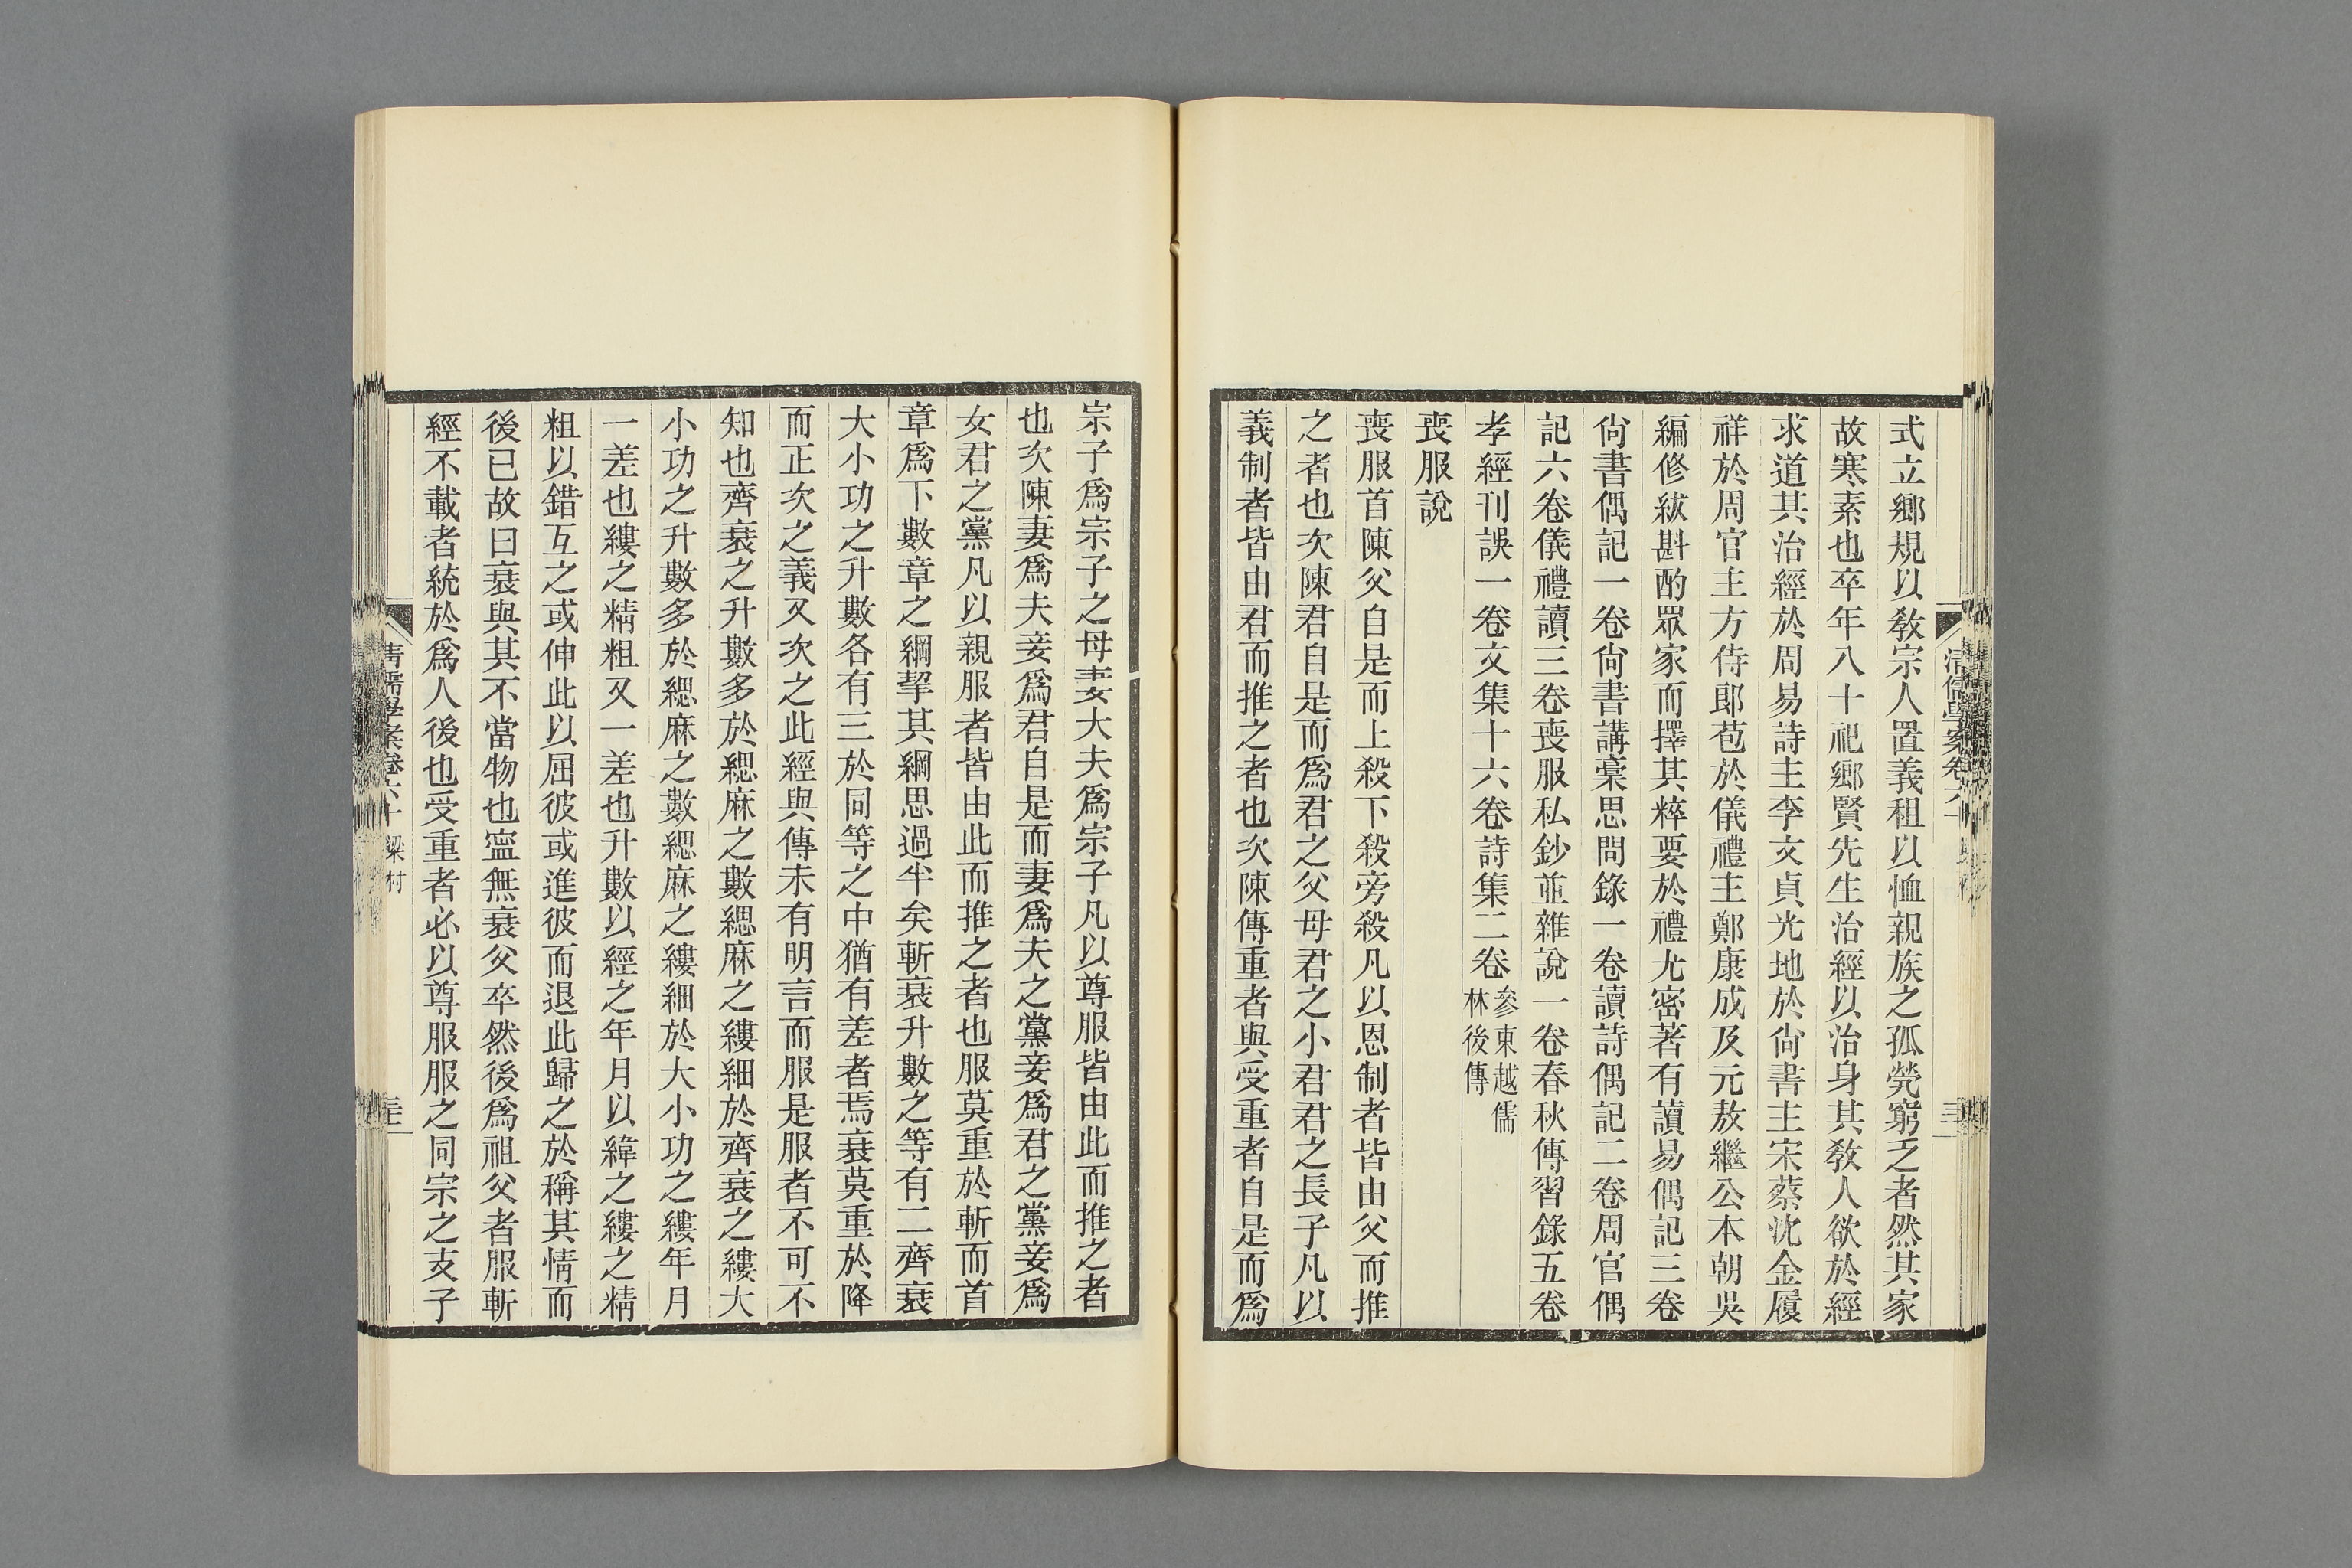 式立鄉規以敎宗人置義租以恤親族之孤煢窮乏者然其家
故寒素也卒年八十祀鄉賢先生治經以治身其敎人欲於經
求道其治經於周易詩主李文貞光地於尙書主宋蔡沈金履
祥於周官主方侍郎苞於儀禮主鄭康成及元敖繼公本朝吳
編修紱斟酌眾家而擇其粹要於禮尤密著有讀易偶記三卷
尙書偶記一卷尙書講稾思問錄一卷讀詩偶記二卷周官偶
記六卷儀禮讀三卷喪服私鈔並雜說一卷春秋傳習錄五卷
孝經刊誤一卷文集十六卷詩集二卷參東越儒
林後傳
喪服說
喪服首陳父自是而上殺下殺旁殺凡以恩制者皆由父而推
之者也次陳君自是而爲君之父母君之小君君之長子凡以
義制者皆由君而推之者也次陳傳重者與受重者自是而爲
宗子爲宗子之母妻大夫爲宗子凡以尊服皆由此而推之者
也次陳妻爲夫妾爲君自是而妻爲夫之黨妾爲君之黨妾爲
女君之黨凡以親服者皆由此而推之者也服莫重於斬而首
章爲下數章之綱挈其綱思過半矣斬衰升數之等有二齊衰
大小功之升數各有三於同等之中猶有差者焉衰莫重於降
而正次之義又次之此經與傳未有明言而服是服者不可不
知也齊衰之升數多於緦麻之數緦麻之縷細於齊衰之縷大
小功之升數多於緦麻之數緦麻之縷細於大小功之縷年月
一差也縷之精粗又一差也升數以經之年月以緯之縷之精
粗以錯互之或伸此以屈彼或進彼而退此歸之於稱其情而
後已故曰衰與其不當物也寧無衰父卒然後爲祖父者服斬
經不載者統於爲人後也受重者必以尊服服之同宗之支子
清儒學案卷六十 梁村